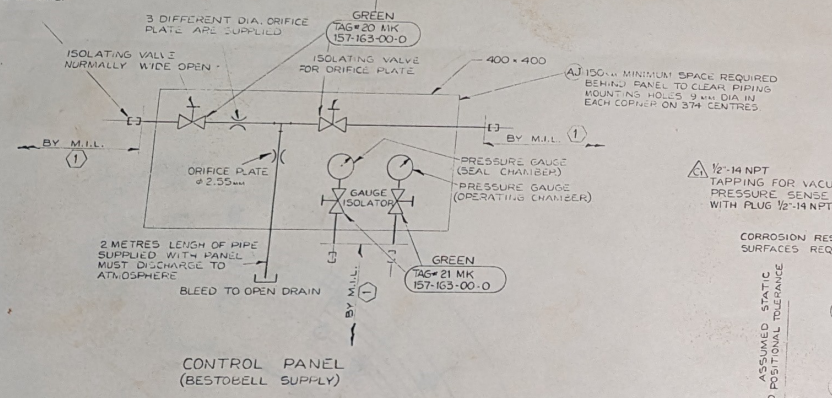 3 DIFFERENT DIA. ORIFICE
PLATE ARE SUPPLIED
GREEN
TAG#20 MK
157-163-00-0
ISOLATING VALVE
NORMALLY WIDE OPEN
ISOLATING VALVE
FOR ORIFICE PLATE
400 × 400
AJ 150mm MINIMUM SPACE REQUIRED
BEHIND PANEL TO CLEAR PIPING
MOUNTING HOLES 9mm DIA IN
EACH CORNER ON 374 CENTRES.
BY M.I.L.
1
BY M.I.L.
1
ORIFICE PLATE
ø 2.55mm
PRESSURE GAUGE
(SEAL CHAMBER)
PRESSURE GAUGE
(OPERATING CHAMBER)
GAUGE
ISOLATOR
C1 1/2"-14 NPT
TAPPING FOR VACU
PRESSURE SENSE
WITH PLUG 1/2"-14 NPT
2 METRES LENGH OF PIPE
SUPPLIED WITH PANEL
MUST DISCHARGE TO
ATMOSPHERE
BLEED TO OPEN DRAIN
GREEN
TAG#21 MK
157-163-00-0
BY M.I.L.
1
CORROSION RES
SURFACES REQ
ASSUMED STATIC
POSITIONAL TOLERANCE
CONTROL PANEL
(BESTOBELL SUPPLY)